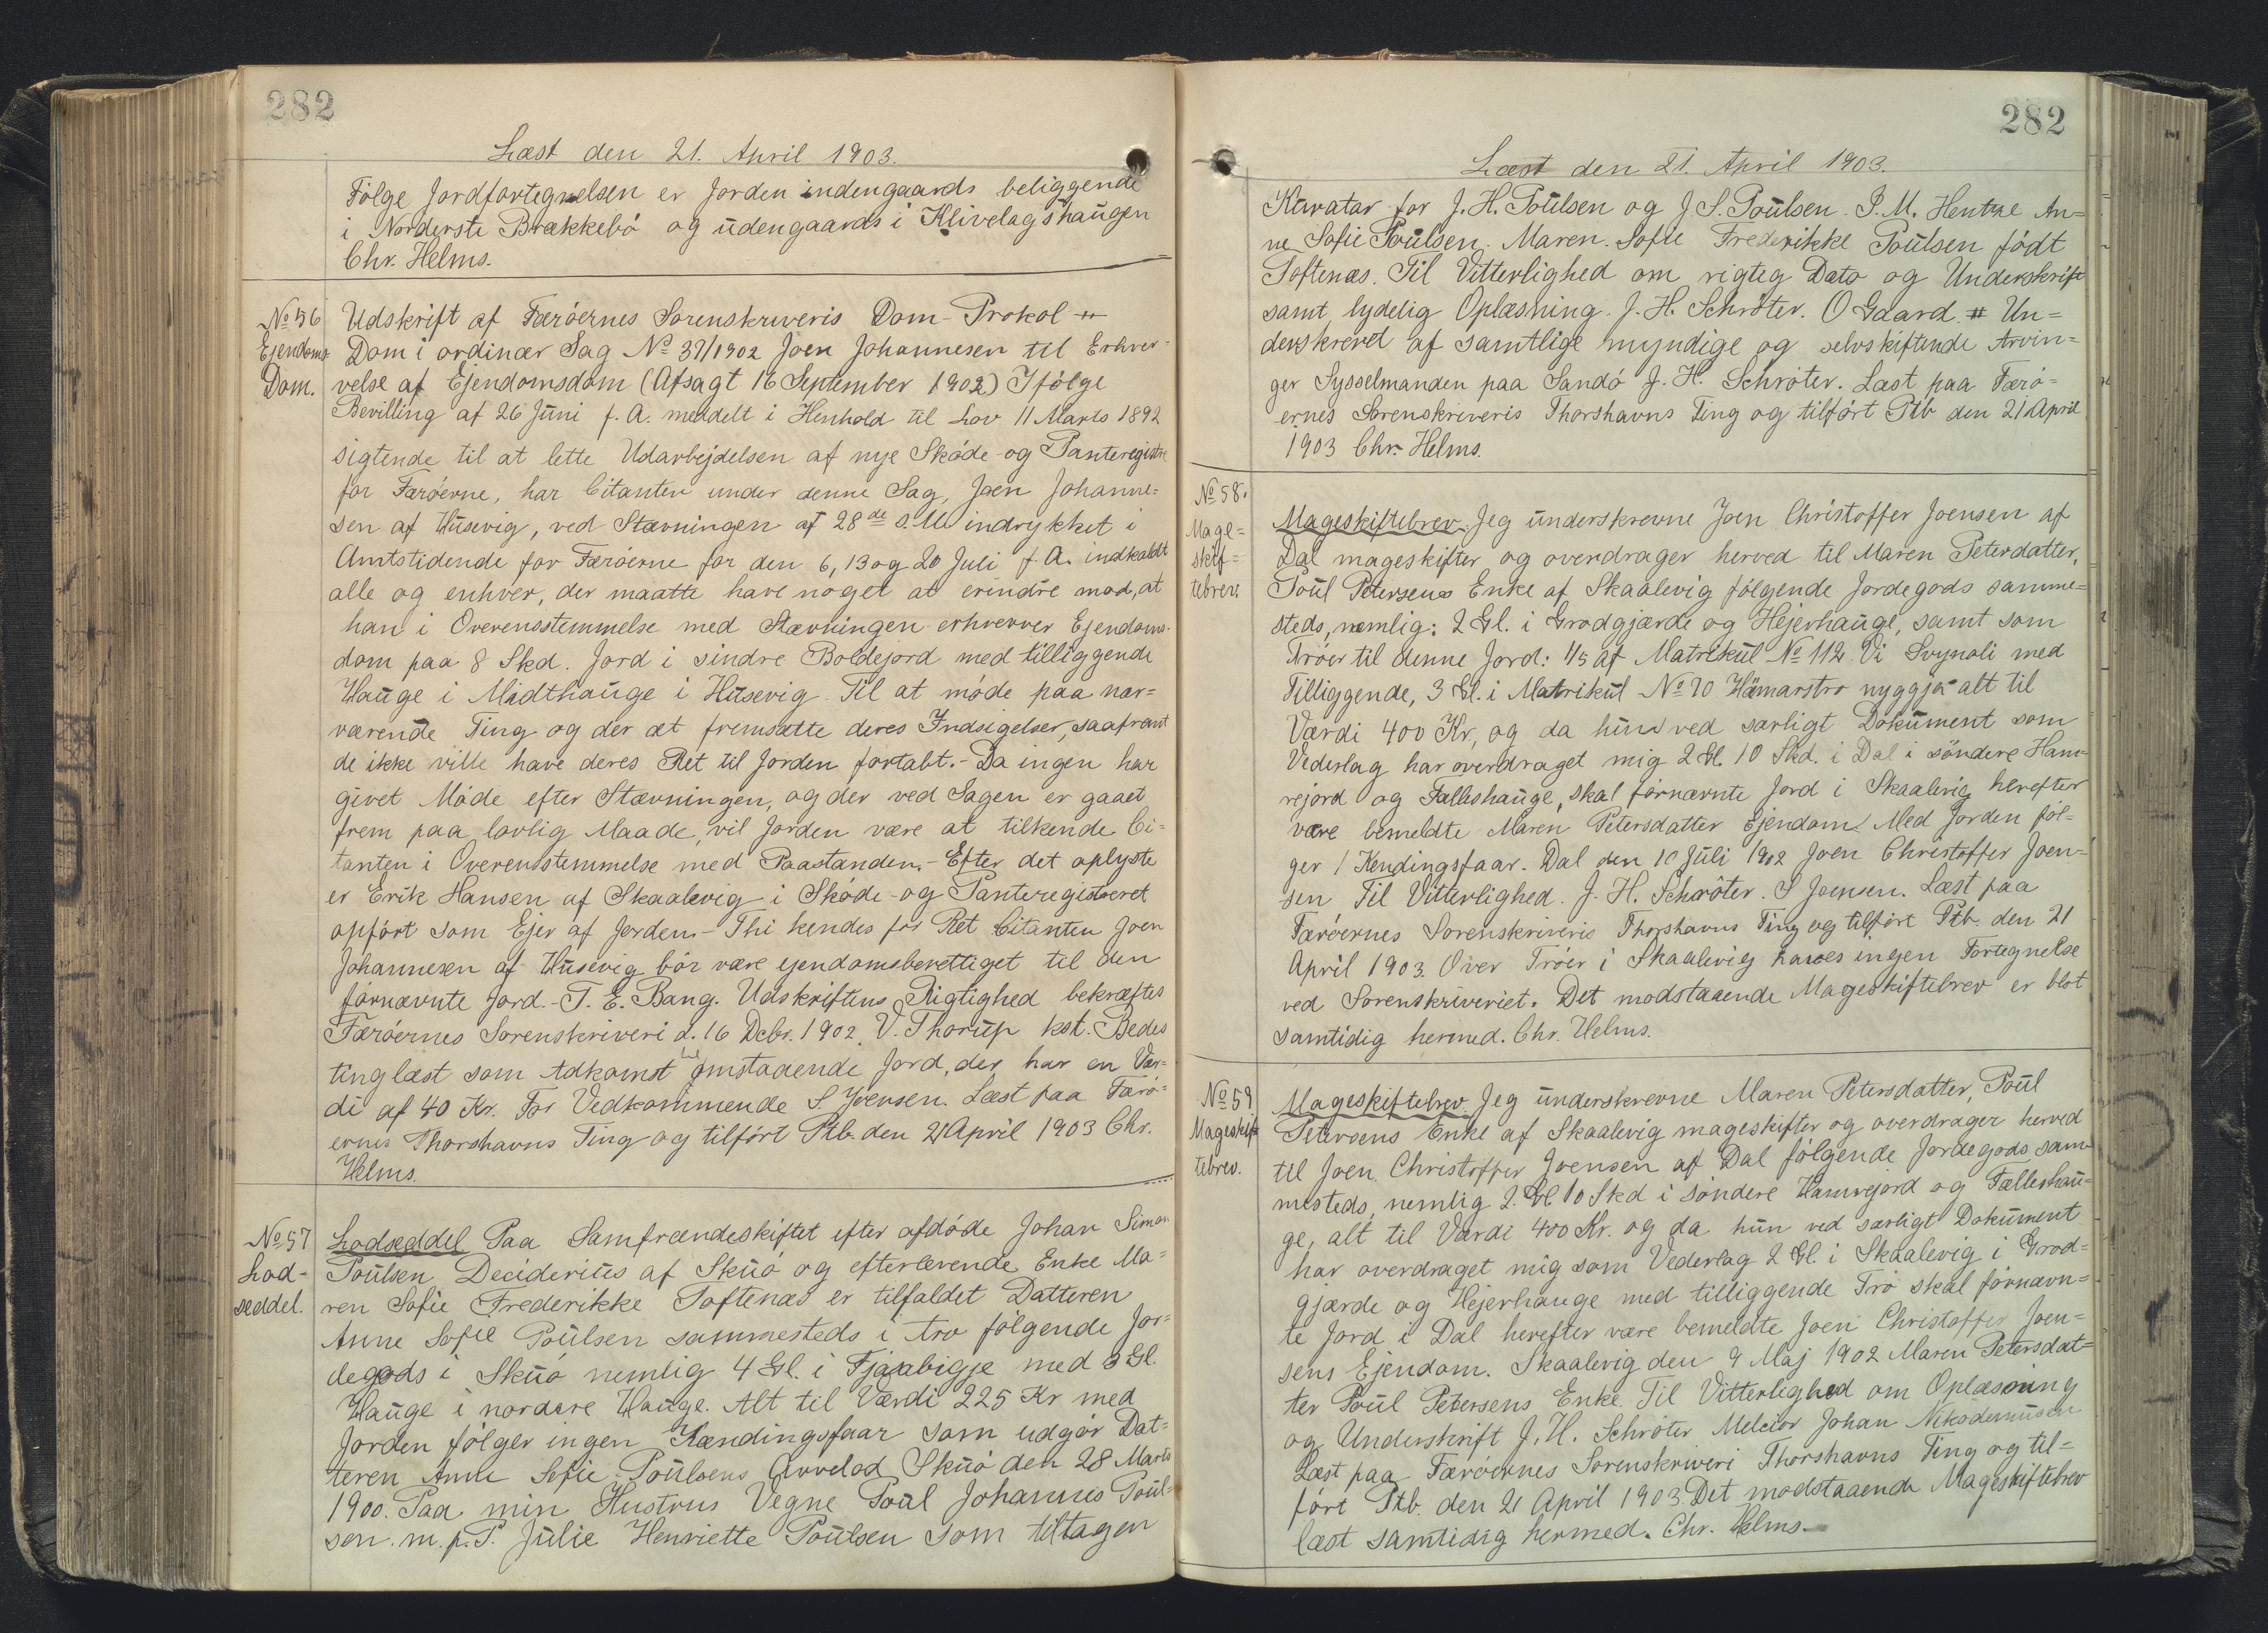 282
Læst den 21. April 1903.
Følge Jordfortegnelsen er Jorden indengaards beliggende
i Norderste Brekkebø og udengaards i Klivelagshaugen
Chr. Helms.
No 56
Ejendoms
Dom.
Udskrift af Færøernes Sorenskriveris Dom-Protokol
Dom i ordinær Sag No 37/1902 Joen Johannesen til Erhver-
velse af Ejendomsdom (Afsagt 16 September 1902) Ifølge
Bevilling af 26 Juni f. A. meddelt i Henhold til Lov 11 Marts 1892
sigtende til at lette Udarbejdelsen af nye Skøde- og Panteregistre
for Færøerne, har Citanten under denne Sag, Joen Johanne=
sen af Husevig, ved Stævningen af 28de s. M. indrykket i
Amtstidende for Færøerne for den 6, 13 og 20 Juli f. A. indkaldt
alle og enhver, der maatte have noget at erindre mod, at
han i Overensstemmelse med Stævningen erhverver Ejendoms-
dom paa 8 Skd. Jord i sindre Boldejord med tilliggende
Hauge i Midthauge i Husevig. Til at møde paa nær=
værende Ting og der at fremsætte deres Indsigelser, saafremt
de ikke ville have deres Ret til Jorden fortabt.- Da ingen har
givet Møde efter Stævningen, og der ved Sagen er gaaet
frem paa lovlig Maade, vil Jorden være at tilkende Ci=
tanten i Overensstemmelse med Paastanden.- Efter det oplyste
er Erik Hansen af Skaalevig i Skøde- og Panteregisteret
opført som Ejer af Jorden.- Thi kendes for Ret Citanten Joen
Johannesen af Husevig bør være ejendomsberettiget til den
førnævnte Jord.- T. E. Bang. Udskriftens Rigtighed bekræftes
Færøernes Sorenskriveri d. 16 Decbr. 1902. V. Thorup kst. Bedes
tinglæst som Adkomst til omstaaende Jord, der har en Vær-
di af 40 Kr. For Vedkommende S. Joensen. Læst paa Færø=
ernes Thorshavns Ting og tilført Ptb. den 21 April 1903 Chr.
Helms.
No 57
Lod-
seddel.
Lodseddel Paa Samfrændeskiftet efter afdøde Johan Simon
Poulsen Deciderius af Skuø og efterlevende Enke Ma=
ren Sofie Frederikke Toftenæs er tilfaldet Datteren
Anne Sofie Poulsen sammesteds i Arv følgende Jor=
degods i Skuø nemlig 4 Gl. i Fjaabigje med 3 Gl.
Hauge i nordere Hauge. Alt til Værdi 225 Kr med
Jorden følger ingen Kændingsfaar som udgør Dat=
teren Anne Sofie Poulsens Arvelod Skuø den 28 Marts
1900. Paa min Hustrus Vegne Poul Johannes Poul=
sen. m. p. P. Julie Henriette Poulsen som tiltagen
282
Læst den 21. April 1903.
Kurator for J. H. Poulsen og J. S. Poulsen. P. M. Hentze An=
ne Sofie Poulsen. Maren Sofie Frederikke Poulsen født
Toftenæs. Til Vitterlighed om rigteg Dato og Underskrift
samt lydelig Oplæsning. J. H. Schrøter. O Gaard # Un=
derskrevet af samtlige myndige og selvskiftende Arvin=
ger Sysselmanden paa Sandø J. H. Schrøter. Læst paa Færø=
ernes Sorenskriveris Thorshavns Ting og tilført Ptb den 21 April
1903 Chr. Helms.
No 58.
Mage=
skif=
tebrev.
Mageskiftebrev. Jeg underskrevne Joen Christoffer Joensen af
Dal mageskifter og overdrager herved til Maren Petersdatter,
Poul Petersens Enke af Skaalevig følgende Jordegods samme=
steds, nemlig: 2 Gl. i Grodgjærde og Hejerhauge, samt som
Trøer til denne Jord: 1/5 af Matrikul No 112 Vi Svynali med
Tilliggende, 3 Gl. i Matrikul No 70 Hamarstro nyggja alt til
Værdi 400 Kr, og da hun ved særligt Dokument som
Vederlag har overdraget mig 2 Gl. 10 Skd. i Dal i søndere Ham-
rejord og Fælleshauge, skal førnævnte Jord i Skaalevig herefter
være bemeldte Maren Petersdatter Ejendom. Med Jorden føl-
ger 1 Kendingsfaar. Dal den 10 Juli 1902 Joen Christoffer Joen-
sen Til Vitterlighed. J. H. Schrøter. S Joensen. Læst paa
Færøernes Sorenskriveris Thorshavns Ting og tilført Ptb. den 21
April 1903. Over Trøer i Skaalevig haves ingen Fortegnelse
ved Sorenskriveriet. Det modstaaende Mageskiftebrev er blot
samtidig hermed. Chr. Helms.
No 59
Mageskif
tebrev.
Mageskiftebrev. Jeg underskrevne Maren Petersdatter, Poul
Petersens Enke af Skaalevig mageskifter og overdrager herved
til Joen Christoffer Joensen af Dal følgende Jordegods sam-
mesteds, nemlig 2. Gl 10 Skd i søndere Hamrejord og Fælleshau=
ge, alt til Værdi 400 Kr. og da hun ved særligt Dokument
har overdraget mig som Vederlag 2 Gl. i Skaalevig i Grod=
gjærde og Hejerhauge med tilliggende Trø skal førnævn=
te Jord i Dal herefter være bemeldte Joen Christoffer Joen=
sens Ejendom. Skaalevig den 9 Maj 1902 Maren Petersdat=
ter Poul Petersens Enke. Til Vitterlighed om Oplæsning
og Underskrift J. H. Schrøter Melcior Johan Nikodemusen
Læst paa Færøernes Sorenskriveri Thorshavns Ting og til=
ført Ptb. den 21 April 1903. Det modstaaende Mageskiftebrev
læst samtidig hermed. Chr. Helms.